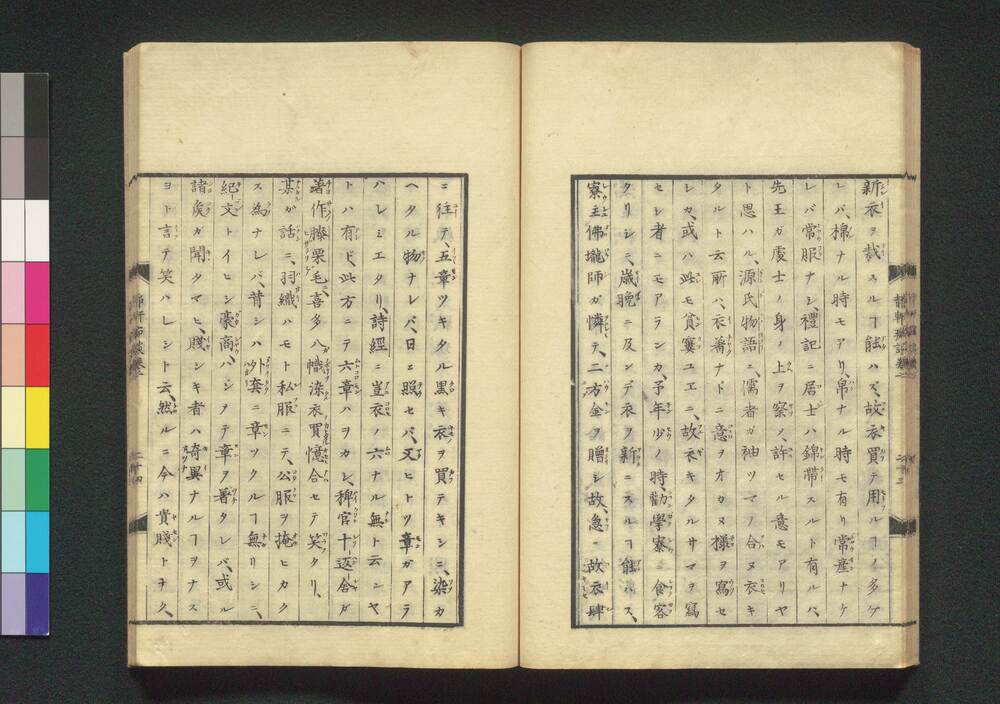 新衣ヲ裁スルヿ能ハズ、故衣買テ用ルヿノ多ケ
レバ、棉ナル時モアリ、帛ナル時モ有リ常産ナケ
レバ常服ナシ、禮記ニ居士ハ錦帶スルト有ルハ、
先王ガ處士ノ身ノ上ヲ察ノ、許セル意モアリヤ
ト思ハル、源氏物語ニ、儒者ガ袖ツマノ合ヌ衣キ
タルト云所ハ、衣著ナドニ意ヲオカヌ樣ヲ寫セ
シカ、或ハ此モ貧窶ユエニ、故衣キタルサマヲ寫
セシ者ニモアランカ、予年少ノ時、勸學寮ニ食客
タリシニ、歳晩ニ及ンデ衣ヲ新ニスルヿ能ハス、
寮主佛壠師ガ憐テ、二方金ヲ贈シ故、急ニ故衣肆
ニ往テ、五章ツキタル黒キ衣ヲ買テキシニ、染カ
ヘタル物ナレバ、日ニ照セバ、又ヒトツ章ガアラ
ハレミエタリ、詩經ニ豈衣ノ六ナル無ト云ンヤ
トハ有ド、此方ニテ六章ハヲカシ、稗官十返舎ガ
著作膝栗毛喜多八幟染衣買憶合セテ笑タリ、
某ガ話ニ、羽織ハモト私服ニテ、公服ヲ掩ヒカク
ス為ナレバ、昔シハ外套ニ章ツクルヿ無リシニ、
紀文トイヒシ豪商、ハシテ章ヲ著タレバ、或ル
諸矦ガ聞タマヒ、賤シキ者ハ奇異ナルヿヲナス
ヨト言テ笑ハレシト云、然ルニ今ハ貴賤トヲク、